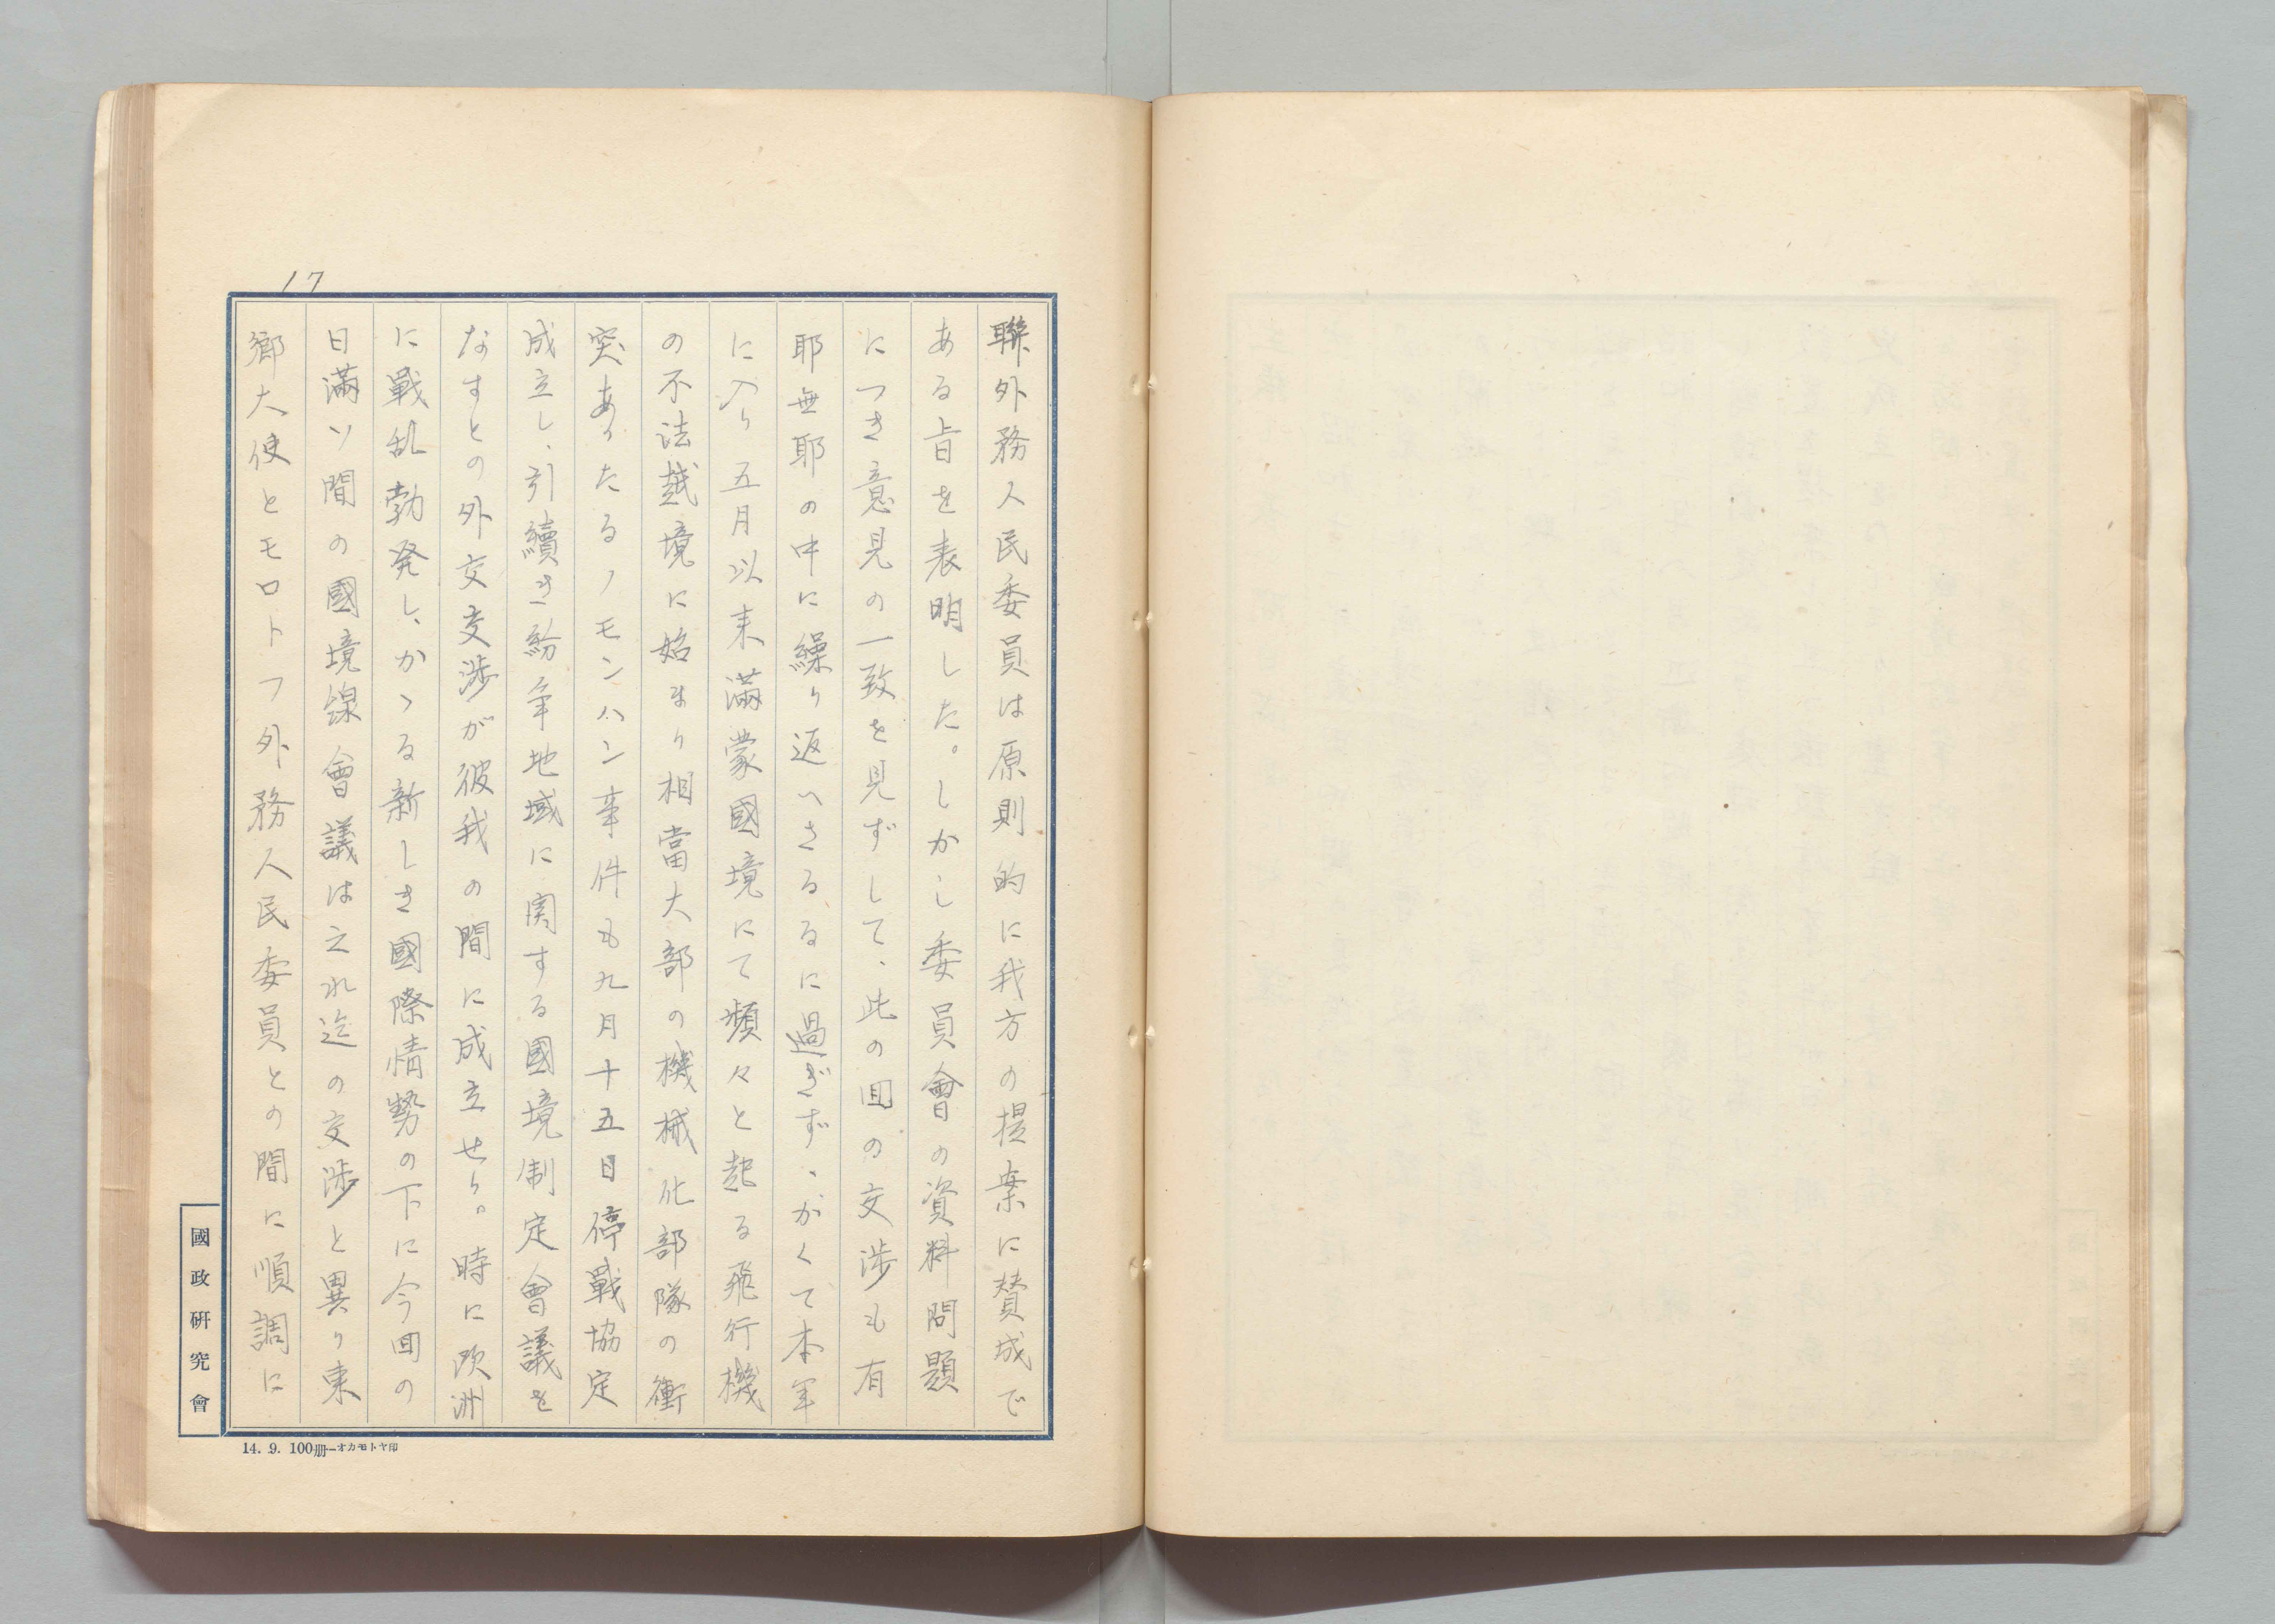 17
聯外務人民委員は原則的に我方の提案に賛成で
ある旨を表明した。しかし委員會の資料問題
につき意見の一致を見ずして、此の囬の交渉も有
耶無耶の中に繰り返へさるるに過ぎず、かくて本年
に入り五月以来満蒙國境にて頻々と起る飛行機
の不法越境に始まり相當大部の機械化部隊の衝
突ありたるノモンハン事件も九月十五日停戰協定
成立し、引續き紛争地域に関する國境制定會議を
なすとの外交交渉が彼我の間に成立せり。時に欧洲
に戰乱勃発し、かゝる新しき國際情勢の下に今囬の
日滿ソ間の國境線會議は之れ迄の交渉と異り東
郷大使とモロトフ外務人民委員との間に順調に
國政研究會
14. 9. 100册—オカモトヤ印